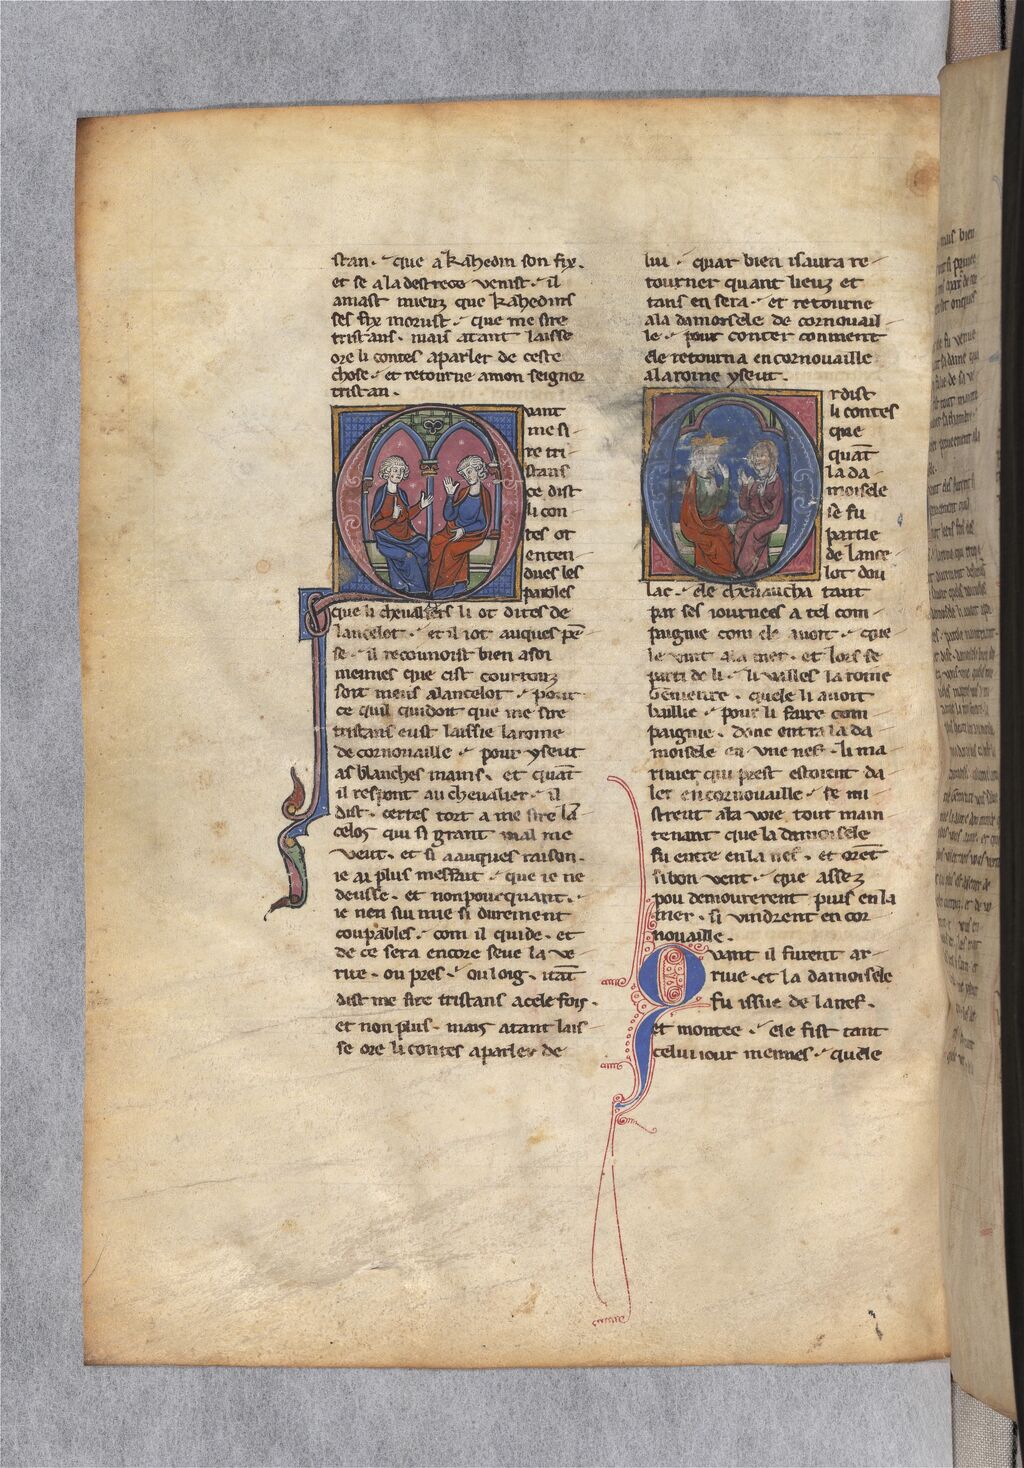 stan. que a kãhedin son fix.
et se a la destrece venist. il
amast mieuz que kahedins
ses fix morust. que me sire
tristans. mais atant laisse
ore li contes a parler de ceste
chose. et retourne a mon seignor
tristan.
Quant
me si
re tri
stans
ce dist
li con
tes ot
enten
dues les
paroles
que li chevaliers li ot dites de
lancelot. et il i ot auques pẽ
se. il recounoist bien a soi
meimes que cist courrouz
sont meus a lancelot. pour
ce quil quidoit que me sire
tristans eust laissie la roine
de cornouaille. pour yseut
as blanches mains. et quãt
il respont au chevalier. il
dist. certes tort a me sire lã
celoz qui si grant mal me
veut. et si a auques raison.
ie ai plus meffait. que ie ne
deusse. et non pour quant.
ie nen sui mie si durement
coupables. com il quide. et
de ce sera encore seue la ve
rite. ou pres. ou long. itãt
dist me sire tristans a cele fois.
et non plus. mais atant lais
se ore li contes a parler de
lui. quar bien i saura re
tourner quant lieuz et
tans en sera. et retourne
a la damoisele de cornouail
le. pour conter conment
ele retourna en cornouaille
a la roine yseut.
Ordist
li contes
que
quãt
la da
moisele
se fu
partie
de lance
lot dou
lac. ele chevaucha tant
par ses iournees a tel com
paignie com ele avoit. que
le vint a la mer. et lors se
parti de li. li valles la roine
Genievre. quele li avoit
baillie. pour li faire com
paignie. donc entra la da
moisele en une nef. li ma
rinier qui prest estoient da
ler en cornouaille. se mi
strent a la voie tout main
tenant que la damoisele
fu entre en la nef. et orẽt
si bon vent. que assez
pou demourerent puis en la
mer. si vindrent en cor
nouaille.
Quant il furent ar
rive. et la damoisele
fu issue de la nef.
et montee. ele fist tant
celui iour meimes. quele